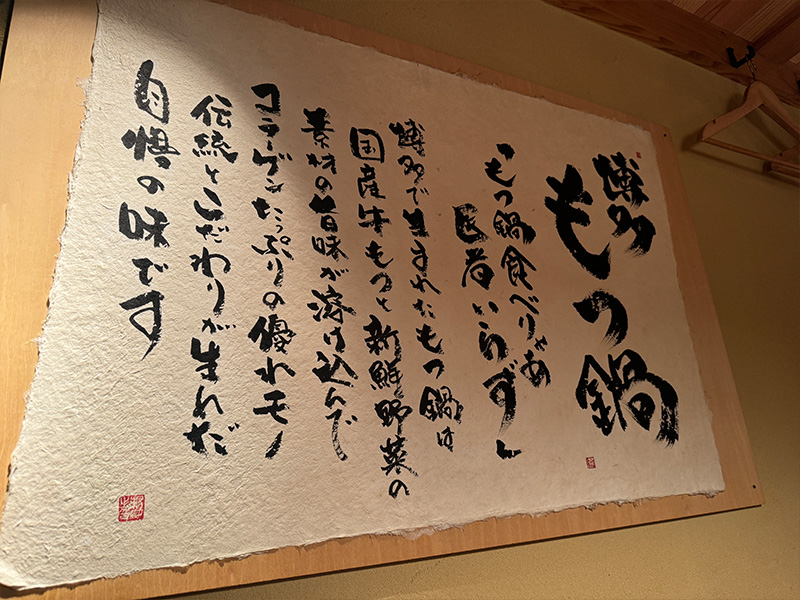 博多
もつ鍋
「もつ鍋食べりゃあ
医者いらず」
博多で生まれたもつ鍋は
国産牛もつと新鮮野菜の
素材の旨味が溶け込んで
コラーゲンたっぷりの優れモノ
伝統とこだわりが生れだ
自慢の味です